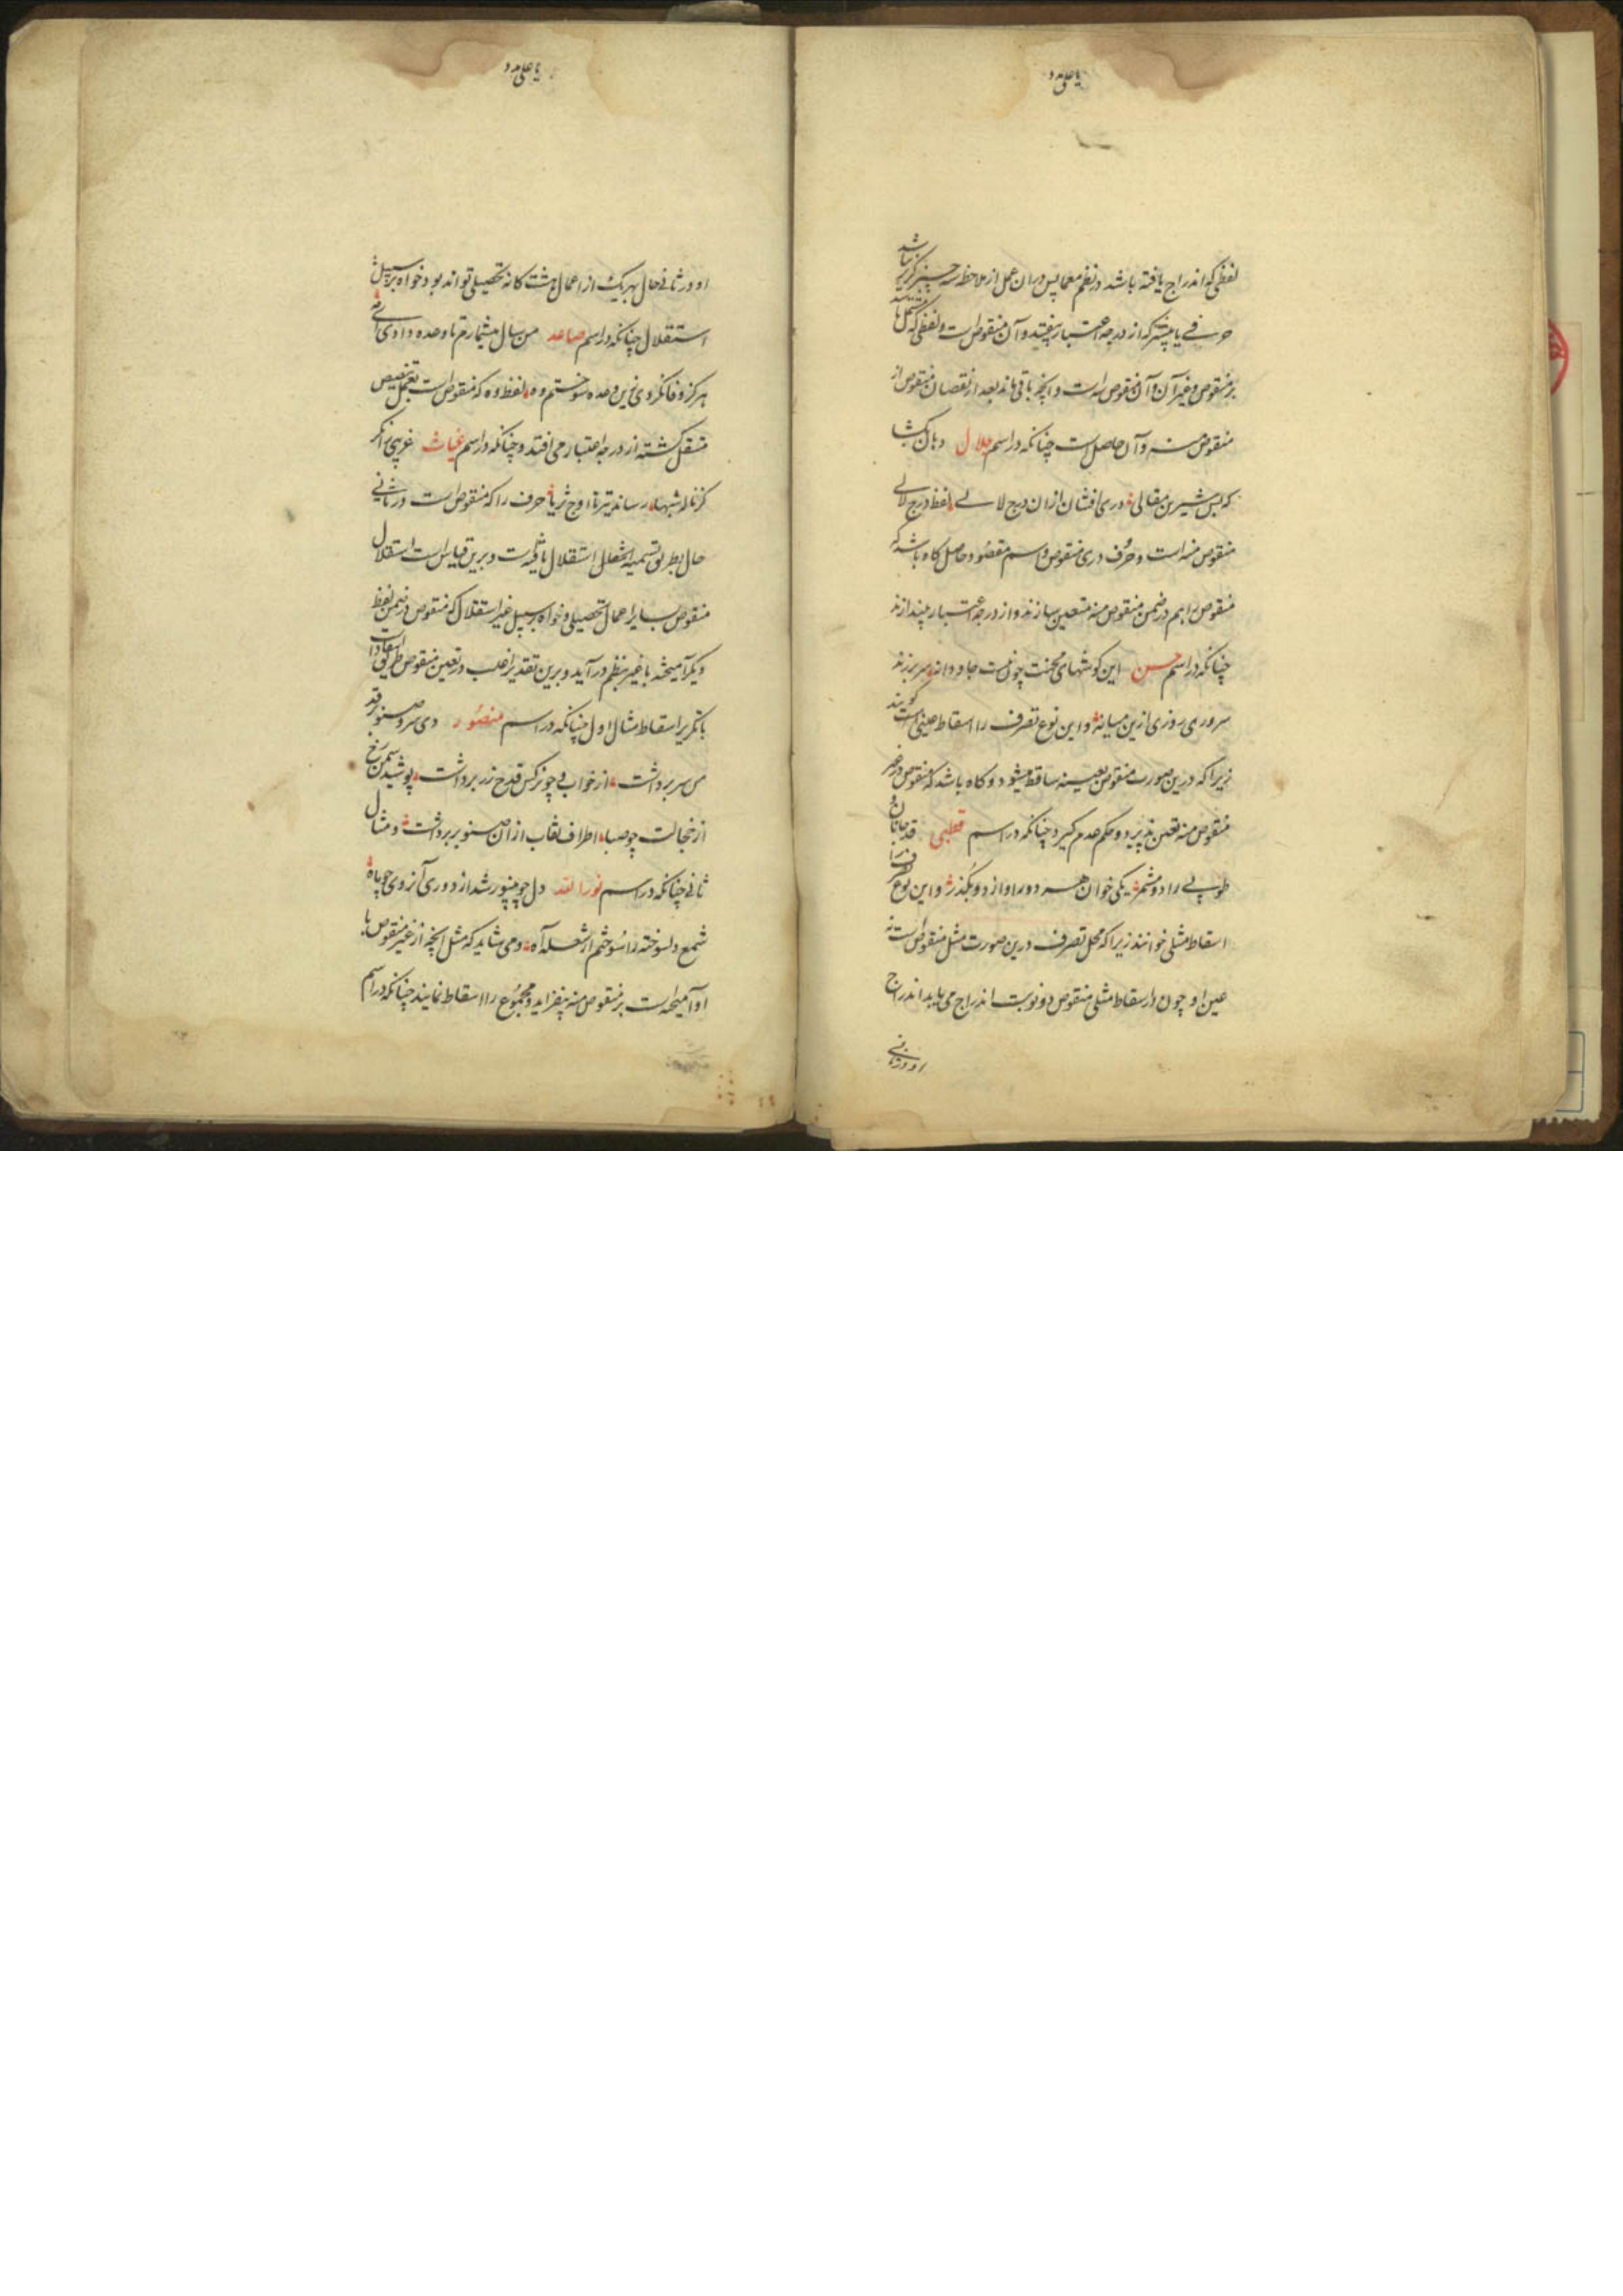 یا علی مدد
لفظی که اندراج یافته باشد در نظم معما پس دران عمل از ملاحظه سه چیز گزیر نباشد
حرفے یا بیشتر که از درجه اعتبار بیفتد و آن منقوص است و لفظی که مشتمل باشد
بر منقوص و غیر آن و آن منقوص منه است و آنچه باقی ماند بعد از نقصان منقوص از
منقوص منه و آن حاصل است چنانکه در اسم جلال دهان بکشا
که بس شیرین مقالی دری افشان ازان درج لالے لفظ درج لالی
منقوص منه است و حرف دری منقوص و اسم مقصود حاصل و گاه باشد که
منقوص را هم در ضمن منقوص منه متعین سازند و از درجه اعتبار بیندازند
چنانکه در اسم حسن این گوشهای محنت چون نیست جاودانه سر برزند
سروری روزی ازین میانه و این نوع تصرف را اسقاط عینی گویند
زیرا که درین صورت منقوص بعینه ساقط میشود و گاه باشد که منقوص در غیر
منقوص منه تعین پذیرد و حکم عدم گیرد چنانکه در اسم قطبی قد جانان و
طوبے را دو مشمر یکی خوان هر دو را و از دو بگذر و این نوع تصرف را
اسقاط مثلی خوانند زیرا که محل تصرف درین صورت مثل منقوص است نه
عین او چون در اسقاط مثلی منقوص دو نوبت اندراج می یابد اندراج
او در ثانی
یا علی مدد
او در ثانی حال بهر یک از اعمال هشت کانه تحصیلی تواند بود خواه بر سبیل
استقلال چنانکه در اسم صاعد من سال میشمارم تا وعده دادی ای مه
هرگز وفا نکردی زین وعده سوختم وه لفظ وه که منقوص است بعمل تنصیص
مستقل گشته از درجه اعتبار می افتد و چنانکه در اسم غیاث غریبی را نگر
کز ناله شبها رساند تیر تا اوج ثریا حرف را که منقوص است در ثانی
حال بطریق تسمیه استقلال یافته است و برین قیاس است استقلال
منقوص بسایر اعمال تحصیلی و خواه بر سبیل غیر استقلال که منقوص در ضمن لفظ
دیگر آمیخته با غیر بنظم در آید و برین تقدیر اغلب در تعین منقوص طریق
با تکریر اسقاط مثال اول چنانکه در اسم منصور دی سرو صنوبر قد
من سر برداشت از خواب چو نرگس قدح زر برداشت پوشید سمن رخ
از خجالت چو صبا اطراف نقاب ازان صنوبر برداشت و مثال
ثانی چنانکه در اسم نورالله دل چو بینور شد از دوری آنروی چو ماه
شمع دلسوخته را سوختم از شعله آه و می شاید که مثل آنچه از غیر منقوص با
او آمیخته است بر منقوص منه بیفزاید و مجموع را اسقاط نمایند چنانکه در اسم